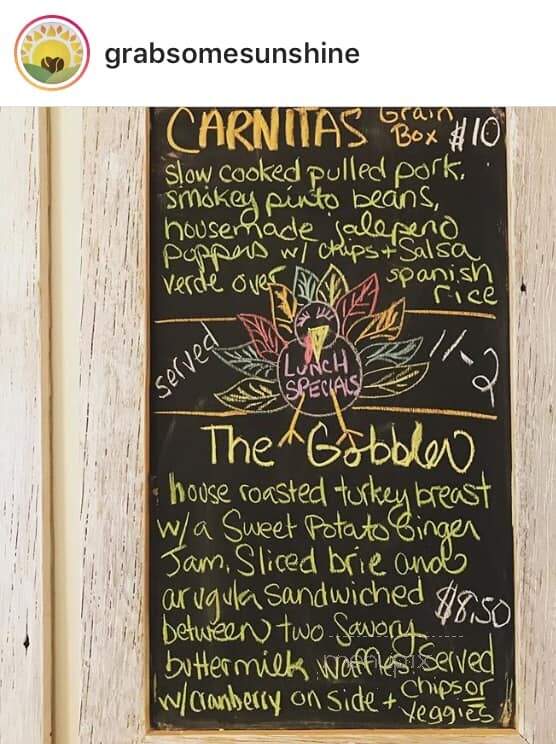 grabsomesunshine
CARNITAS Grain Box $10
slow cooked pulled pork,
smokey pinto beans,
housemade jalepeno
poppers w/ chips + Salsa
verde over spanish
rice
served LUNCH SPECIALS 11-2
The Gobbler
house roasted turkey breast
w/a Sweet Potato Ginger
Jam, Sliced brie and
arugula Sandwiched $8.50
between two Savory
buttermilk waffles served
w/cranberry on side + chips or
veggies